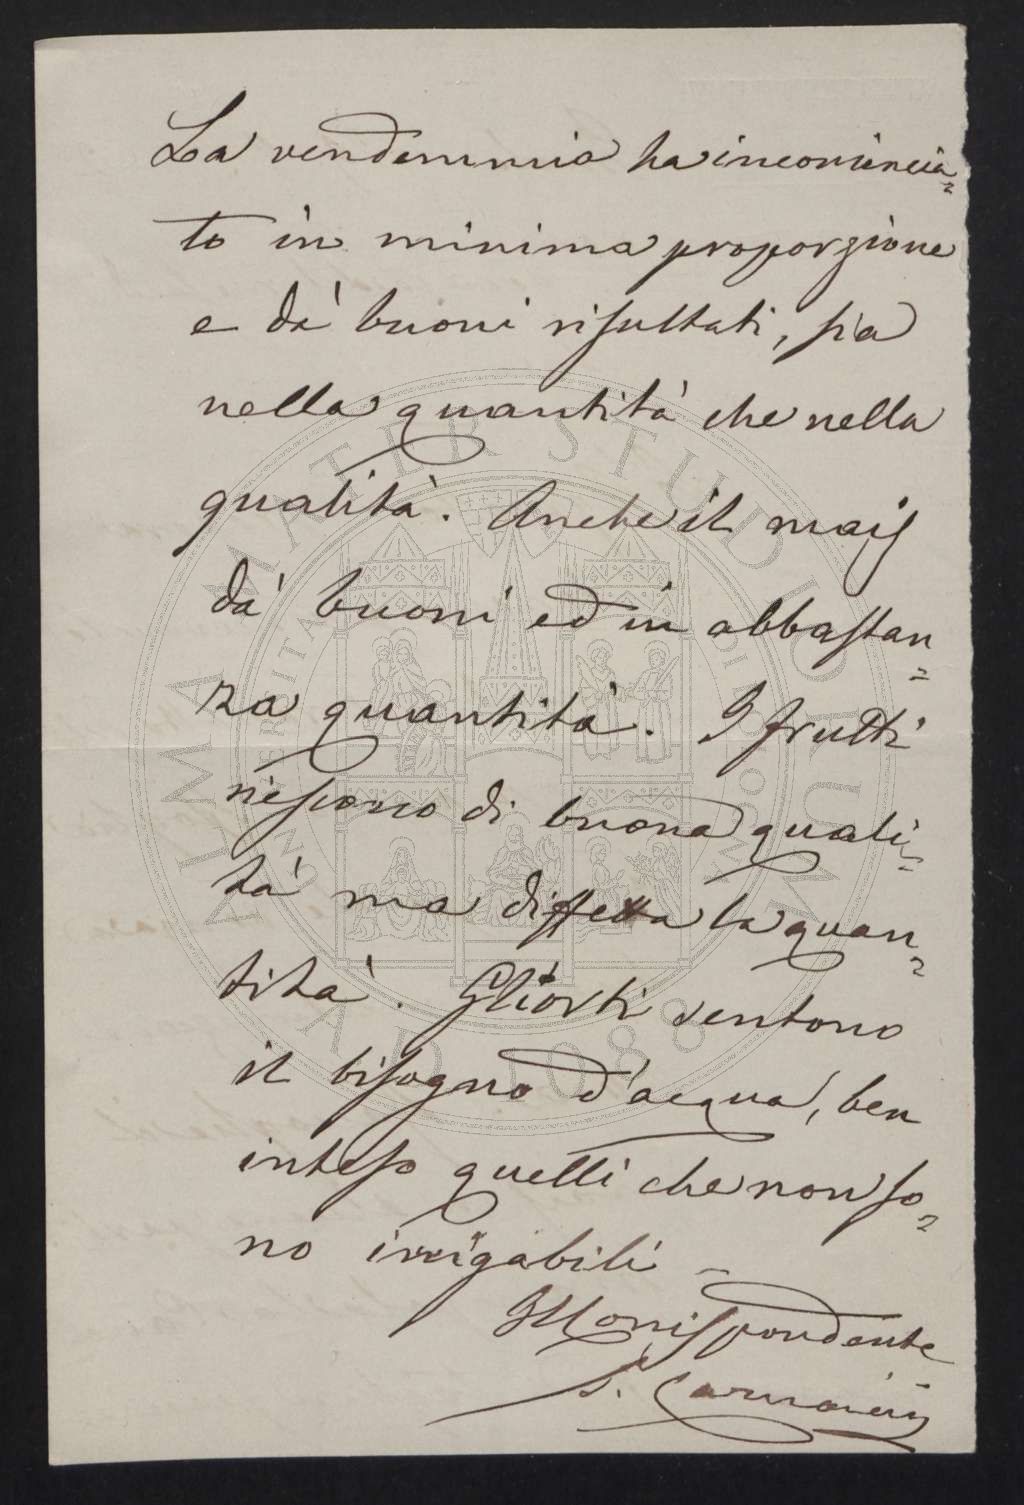 La vendemmia ha incomincia=
to in minima proporzione
e dà buoni risultati, sia
nella quantità che nella
qualità. Anche il mais
dà buoni ed in abbastan=
za quantità. I frutti
riescono di buona quali=
tà ma diffetta la quan=
tità. Gli orti sentono
il bisogno d'acqua, ben
inteso quelli che non so=
no irrigabili
Il Corrispondente
ALMA MATER STUDIORUM
A.D. 1088